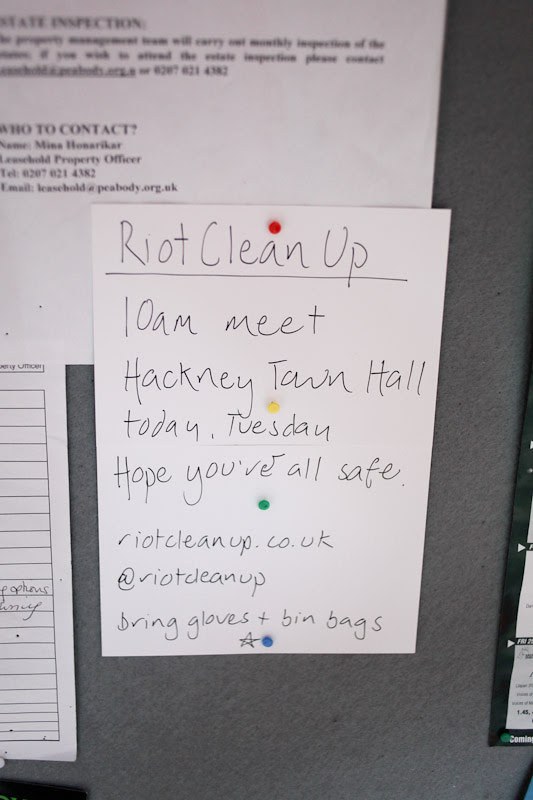 ESTATE INSPECTION:
the property management team will carry out monthly inspection of the
if you wish to attend the estate inspection please contact
leasehold@peabody.org.u or 0207 021 4382
WHO TO CONTACT?
Name: Mina Honarikar
Leasehold Property Officer
Tel: 0207 021 4382
Email: leasehold@peabody.org.uk
Riot Clean Up
10am meet
Hackney Town Hall
today, Tuesday
Hope you've all safe.
riotcleanup.co.uk
@riotcleanup
bring gloves + bin bags
erty Officer
options
FRI 29
1.45,
Coming